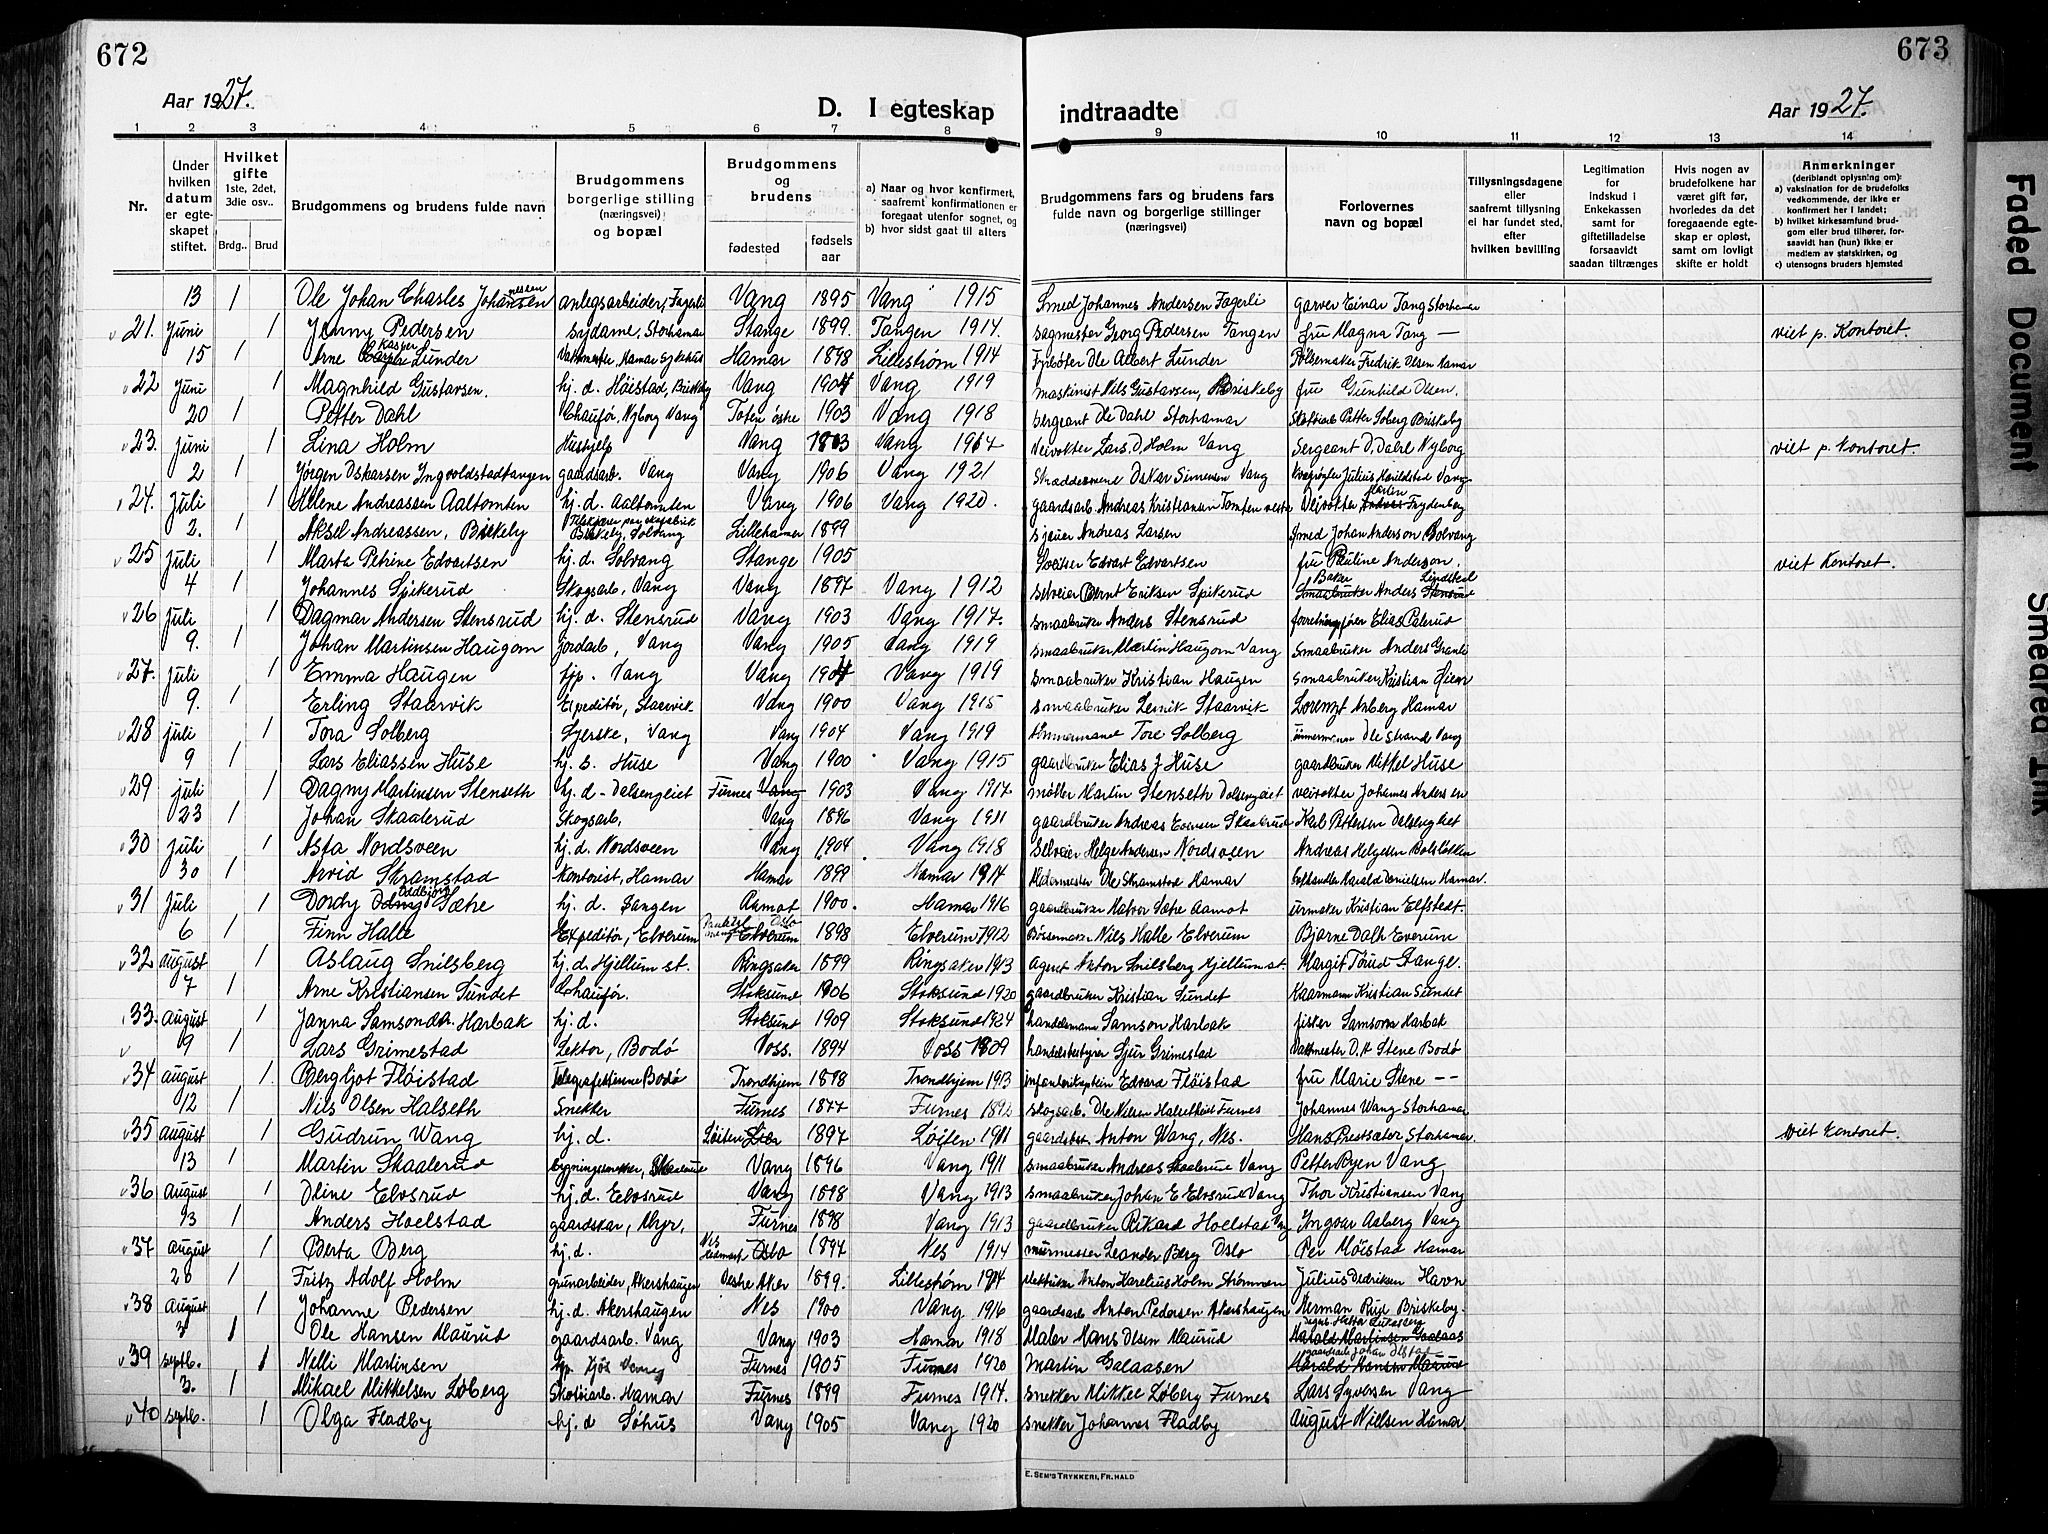 672
673
Aar 1927.
D. I egteskap
indtraadte
Aar 1927.
1 2 3 4 5 6 7 8 9 10 11 12 13 14
Nr.
Under hvilken datum er egteskapet stiftet.
Hvilket gifte 1ste, 2det, 3die osv..
Brdg.. Brud
Brudgommens og brudens fulde navn
Brudgommens borgerlige stilling (næringsvei) og bopæl
Brudgommens og brudens
fødested
fødsels aar
a) Naar og hvor konfirmert, saafremt konfirmationen er foregaat utenfor sognet, og
b) hvor sidst gaat til alters
Brudgommens fars og brudens fars fulde navn og borgerlige stillinger (næringsvei)
Forlovernes navn og bopæl
Tillysningsdagene eller saafremt tillysning ei har fundet sted, efter hvilken bevilling
Legitimation for indskud i Enkekassen samt for giftetilladelse forsaavidt saadan tiltrænges
Hvis nogen av brudefolkene har været gift før, hvorledes da det foregaaende egteskap er opløst, samt om lovligt skifte er holdt
Anmerkninger (deriblandt oplysning om): a) vaksination for de brudefolks vedkommende, der ikke er konfirmert her i landet; b) hvilket kirkesamfund brudgom eller brud tilhører, forsaavidt han (hun) ikke er medlem av statskirken, og c) utensogns bruders hjemsted
13 1 Ole Johan Charles Johannesen anlegsarbeider, Fagerli Vang 1895 Vang 1915 Smed Johannes Andersen Fagerli garver Einar Tang Storhamar
21. Juni 1 Jenny Pedersen sydame, Storhamar Stange 1899. Tangen 1914. sagmester Georg Pedersen Tangen fru Magna Tang — viet p. Kontoret.
15 1 Arne Kasper Lunder Vaktmester, Hamar Sykehus Hamar 1898 Lillestrøm 1914 Fyrbøter Ole Albert Lunder Pølsemaker Fredrik Olsen Hamar
22 Juni 1 Magnhild Gustavsen. hj. d. Høistad, Briskeby Vang 1904 Vang 1919 maskinist Nils Gustavsen, Briskeby fru Gunhild Olsen.
20 1 Petter Dahl Chaufør, Nyborg Vang Toten østre 1903 Vang 1918 sergeant Ole Dahl Storhamar Petter Soberg Briskeby
23. Juni 1 Lina Holm Hushjelp Vang Vang veivokter Lars. D. Holm Vang Sergeant D. Dahl Nyborg viet p. Kontoret.
2 1 Jörgen Oskarsen Ingvoldstadtangen gaardsarb. Vang Vang 1906 Vang 1921 Skræddersvend Oskar Simensen Vang Julius Harildstad Vang
24. Juli 1 Helene Andreassen Aaltomten hj. d. Aaltomten Vang 1906 Vang 1920. gaardsarb. Andreas Kristiansen Tomten vestre Veivokter Martin Frydenberg
2. 1 Aksel Andreassen, Briskeby Briskeby, Solvang Lillehamer 1899 sjauer Andreas Larsen smed Johan Anderson Solvang
25 Juli 1 Marta Petrine Edvartsen hj. d. Solvang Stange 1905 Edvart Edvartsen fru Pauline Anderson. viet Kontoret.
4 1 Johannes Spikerud Skogsarb, Vang Vang 1897 Vang 1912 selveier Bernt Eriksen Spikerud Baker Anders Lindstad
26 Juli 1 Dagmar Andersen Stensrud hj. d. Stensrud Vang 1903 Vang 1917. smaabruker Anders Stensrud forretningsfører Elias Palerud
9. 1 Johan Martinsen Haugom jordarb, Vang Vang 1905 Vang 1919 smaabruker Martin Haugom Vang smaabruker Anders Granli
27. juli 1 Emma Haugen hjp. Vang Vang 1904 Vang 1919 smaabruker Kristian Haugen smaabruker Kristian Øien
9. 1 Erling Staarvik Expeditør, Staarvik Vang 1900 Vang 1915 smaabruker Staarvik Lorenzt Asberg Hamar
28 juli 1 Tora Solberg Syerske, Vang Vang 1904 Vang 1919 tømmermand Tore Solberg Ole Strand Vang
9 1 Lars Eliassen Huse hj. s. Huse Vang 1900 Vang 1915 gaardbruker Elias J Huse gaardbruker Mikkel Huse
29 juli 1 Dagny Martinsen Stenseth hj. d - Dalsengeiet Furnes Vang 1903 Vang 1917 møller Martin Stenseth Dalsengeiet veivokter Johannes Andersen
23 1 Johan Skaalerud Skogsarb, Vang 1896 Vang 1911 gaardbruker Andreas Evensen Skaalerud Karl Pettersen Dalsengeiet
30 juli 1 Asta Nordsveen hj. d. Nordsveen Vang 1904 Vang 1918 selveier Helge Andersen Nordsveen Andreas Helgesen Bolsløkken
30 1 Arvid Skramstad Kontorist, Hamar Hamar 1899 Hamar 1914 Ole Skramstad Hamar Harald Danielsen Hamar.
31 Juli 1 Dordy Oddbjörg Sætre hj. d. Sangen Aamot 1900. Hamar 1916 gaardbruker Halvor Sætre Aamot urmaker Kristian Elfstedt.
6 1 Finn Halle Expeditør, Elverum Oslo Elverum 1898 Elverum 1912 Bøssemaker Nils Halle Elverum Bjarne Dalh Everum
32 august 1 Aslaug Snilsberg hj. d. Hjellum st. Ringsaker 1899 Ringsaker 1913 agent Anton Snilsberg Hjellum st. Margit Törud Stange.
7 1 Arne Kristiansen Sundet chaufør. Stoksund 1906 Stoksund 1920 gaardbruker Kristian Sundet Kaarmann Kristian Sundet
33. august 1 Janna Samsondtr. Harbak hj. d. Stoksund 1909 Stoksund 1924 handelsmann Samson Harbak fisker Samson Harbak
9 1 Lars Grimestad Lektor, Bodø Voss. 1894 Voss 1909 Sjur Grimestad Vaktmester D. A Stene Bodø
34 august 1 Bergljot Fløistad Bodø Trondhjem 1898 Trondhjem 1913 infanterikaptein Edvard Fløistad fru Marie Stene - -
12 1 Nils Olsen Halseth Snekker Furnes 1877 Furnes 1892 skogsarb. Ole Nilsen Halseth Furnes Johannes Wang Storhamar
35 august 1 Gudrun Wang hj. d. Løiten 1897 Løiten 1911 Anton Wang, Nes. Hans Prestsæter, Storhamar viet Kontoret.
13 1 Martin Skaalerud bygningssnekker, Skaalerud Vang 1896 Vang 1911 smaabruker Andreas Skaalerud Vang Petter Byen Vang
36 august 1 Oline Elvsrud hj. d. Elvsrud Vang 1898 Vang 1913 smaabruker Johan E Elvsrud Vang Thor Kristiansen Vang
13 1 Anders Hoelstad gaardskar, Furnes 1898 Vang 1913 gaardbruker Rikard Hoelstad Vg Ingvar Aaberg Vang
37 august 1 Berta Berg hj. d. Nes Hedmark Oslo 1897 Nes 1914 murmester Leander Berg Oslo Per Möistad Hamar
20 1 Fritz Adolf Holm grunarbeider, Akershaugen Vestre Aker 1899. Lillestrøm 1914 Anton Karelius Holm Strømmen Julius Dedriksen Havn
38 august 1 Johanne Pedersen hj. d. Akershaugen Nes 1900 Vang 1916 gaardsarb Anton Pedersen Akershaugen Herman Rud Briskeby.
3 1 Ole Hansen Maurud gaardsarb. Vang Vang 1903 Hamar 1918 Maler Hans Olsen Maurud Harald Martinsen Gaalaas
39 septb. 1 Nelli Martinsen Furnes 1905 Furnes 1920 Martin Galaasen gaardsarb Johan Olstad
3. 1 Mikael Mikkelsen Løberg Skotøiarb. Hamar Furnes 1899 Furnes 1914. snekker Mikkel Løberg Furnes Lars Syversen Vang
40 septb. 1 Olga Fladby hj. d Søhus Vang 1905 Vang 1920 snekker Johannes Fladby August Nielsen Hamar
E. SEM'S TRYKKERI, FR. HALD
Faded Document
Smeared Ink